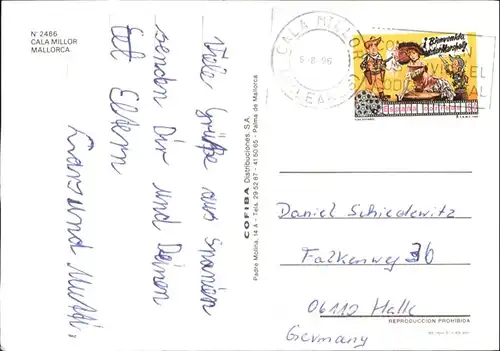 Nº 2466
CALA MILLOR
MALLORCA
Viele Grüße aus Spanien
senden Dir und Deinen
Eltern
und Mutti.
COFIBA Distribuciones, S.A.
Padre Molina, 14 A - Tels. 29 52 87 - 41 50 65 - Palma de Mallorca
CALA MILLOR
BALEARES
¡Bienvenido,
Mister Marshall!
Daniel Schiedewitz
Falkenweg 36
06112 Halle
Germany
REPRODUCCION PROHIBIDA